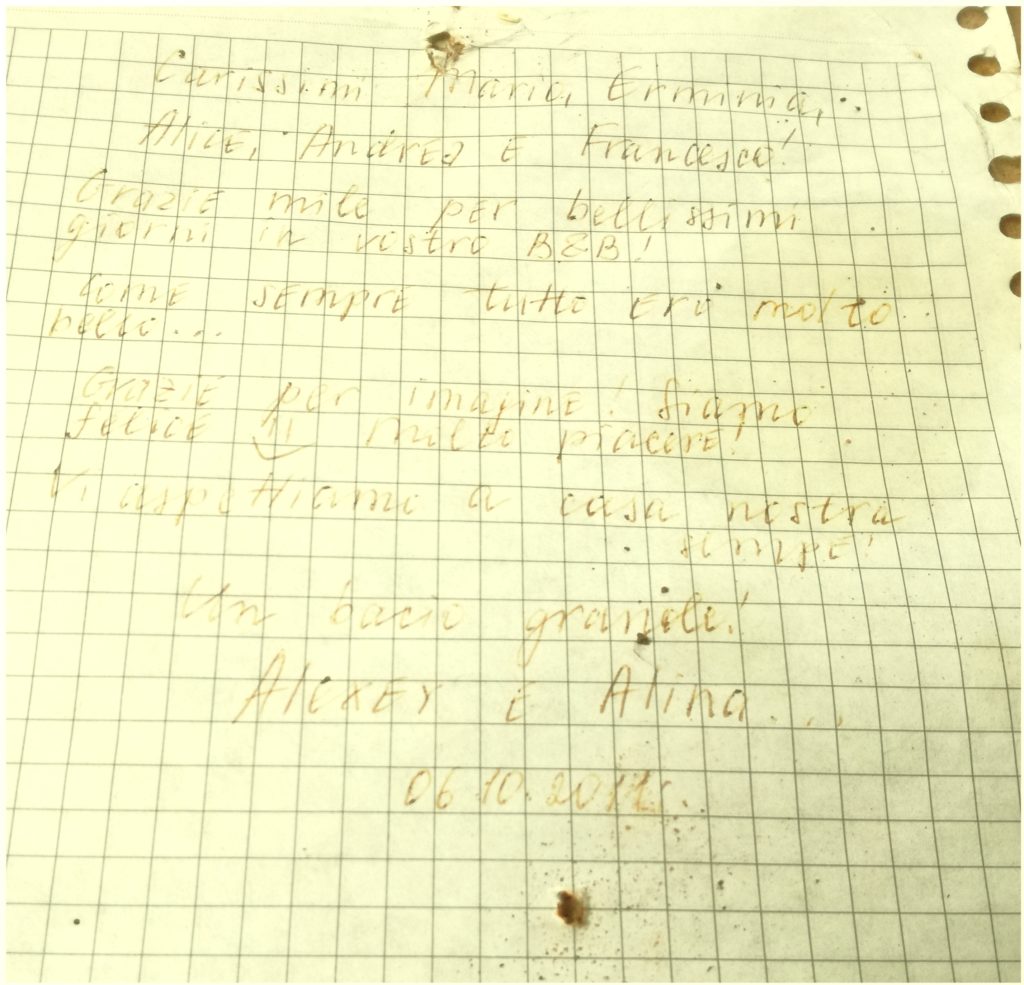 Carissimi Maria, Erminia,
Alice, Andrea e Francesco!
Grazie mile per bellissimi
giorni in vostro B&B!
Come sempre tutto era molto
bello...
Grazie per imagine! Siamo
felice molto piacere!
Vi aspettiamo a casa nostra
sempre!
Un bacio grande!
Alexey e Alina...
06.10.